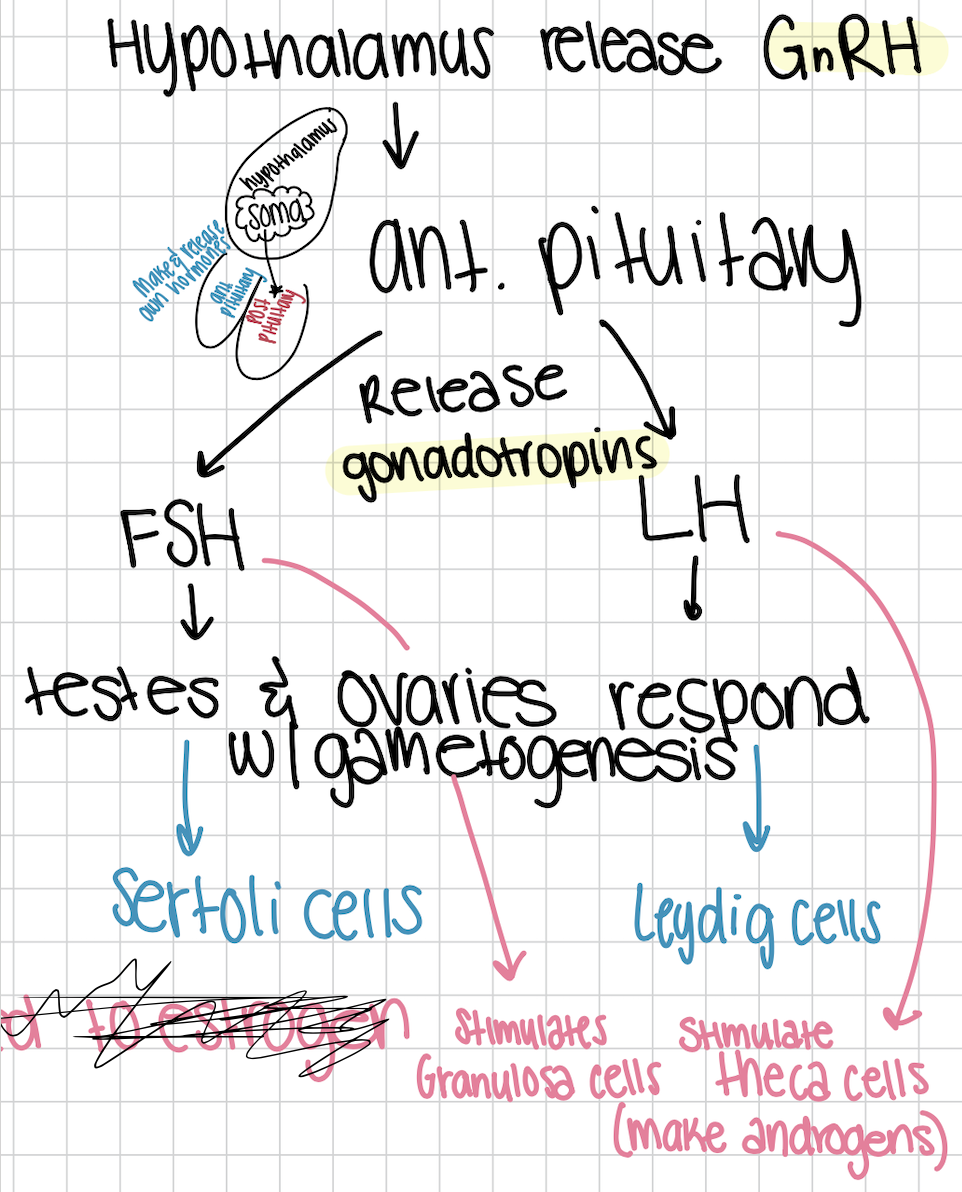 Hypothalamus release GnRH
hypothalamus
soma
Make & release
own hormones
ant
pituitary
post
pituitary
ant. pituitary
Release
gonadotropins
FSH
LH
testes & ovaries respond
w/ gametogenesis
Sertoli cells
Leydig cells
to estrogen
Stimulates
Granulosa cells
Stimulate
theca cells
(make androgens)